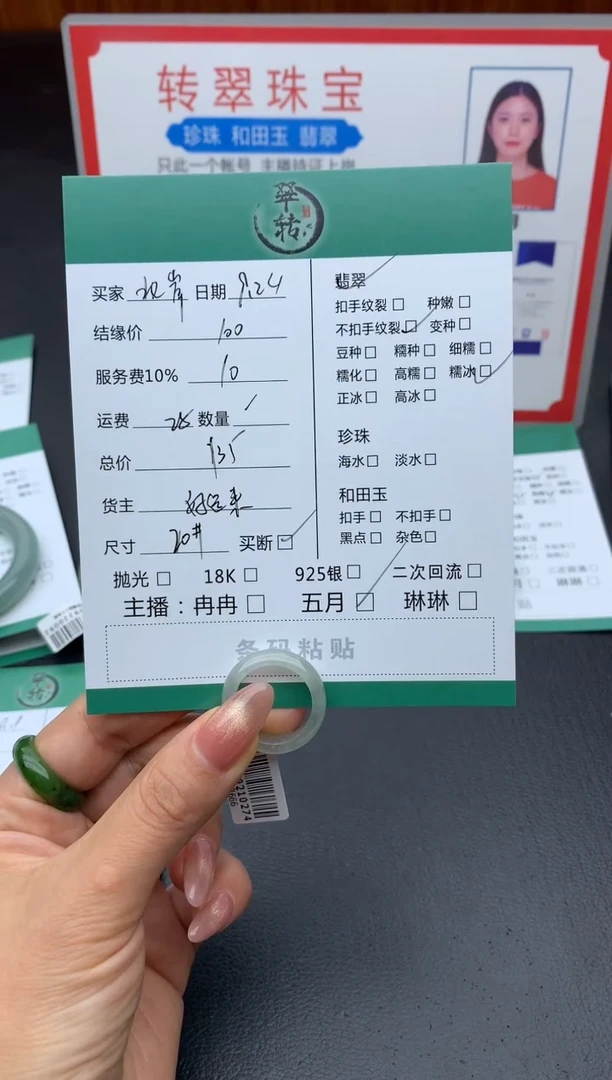 转翠珠宝
珍珠 和田玉 翡翠
只此一个帐号 主播持证上岗
翠转
买家 北岸 日期 9.24
结缘价 100
服务费10% 10
运费 25 数量 /
总价 135
货主 好运来
尺寸 20# 买断 □
翡翠
扣手纹裂 □ 种嫩 □
不扣手纹裂 □ 变种 □
豆种 □ 糯种 □ 细糯 □
糯化 □ 高糯 □ 糯冰 □
正冰 □ 高冰 □
珍珠
海水 □ 淡水 □
和田玉
扣手 □ 不扣手 □
黑点 □ 杂色 □
抛光 □ 18K □ 925银 □ 二次回流 □
主播：冉冉 □ 五月 □ 琳琳 □
条码粘贴
210274
666